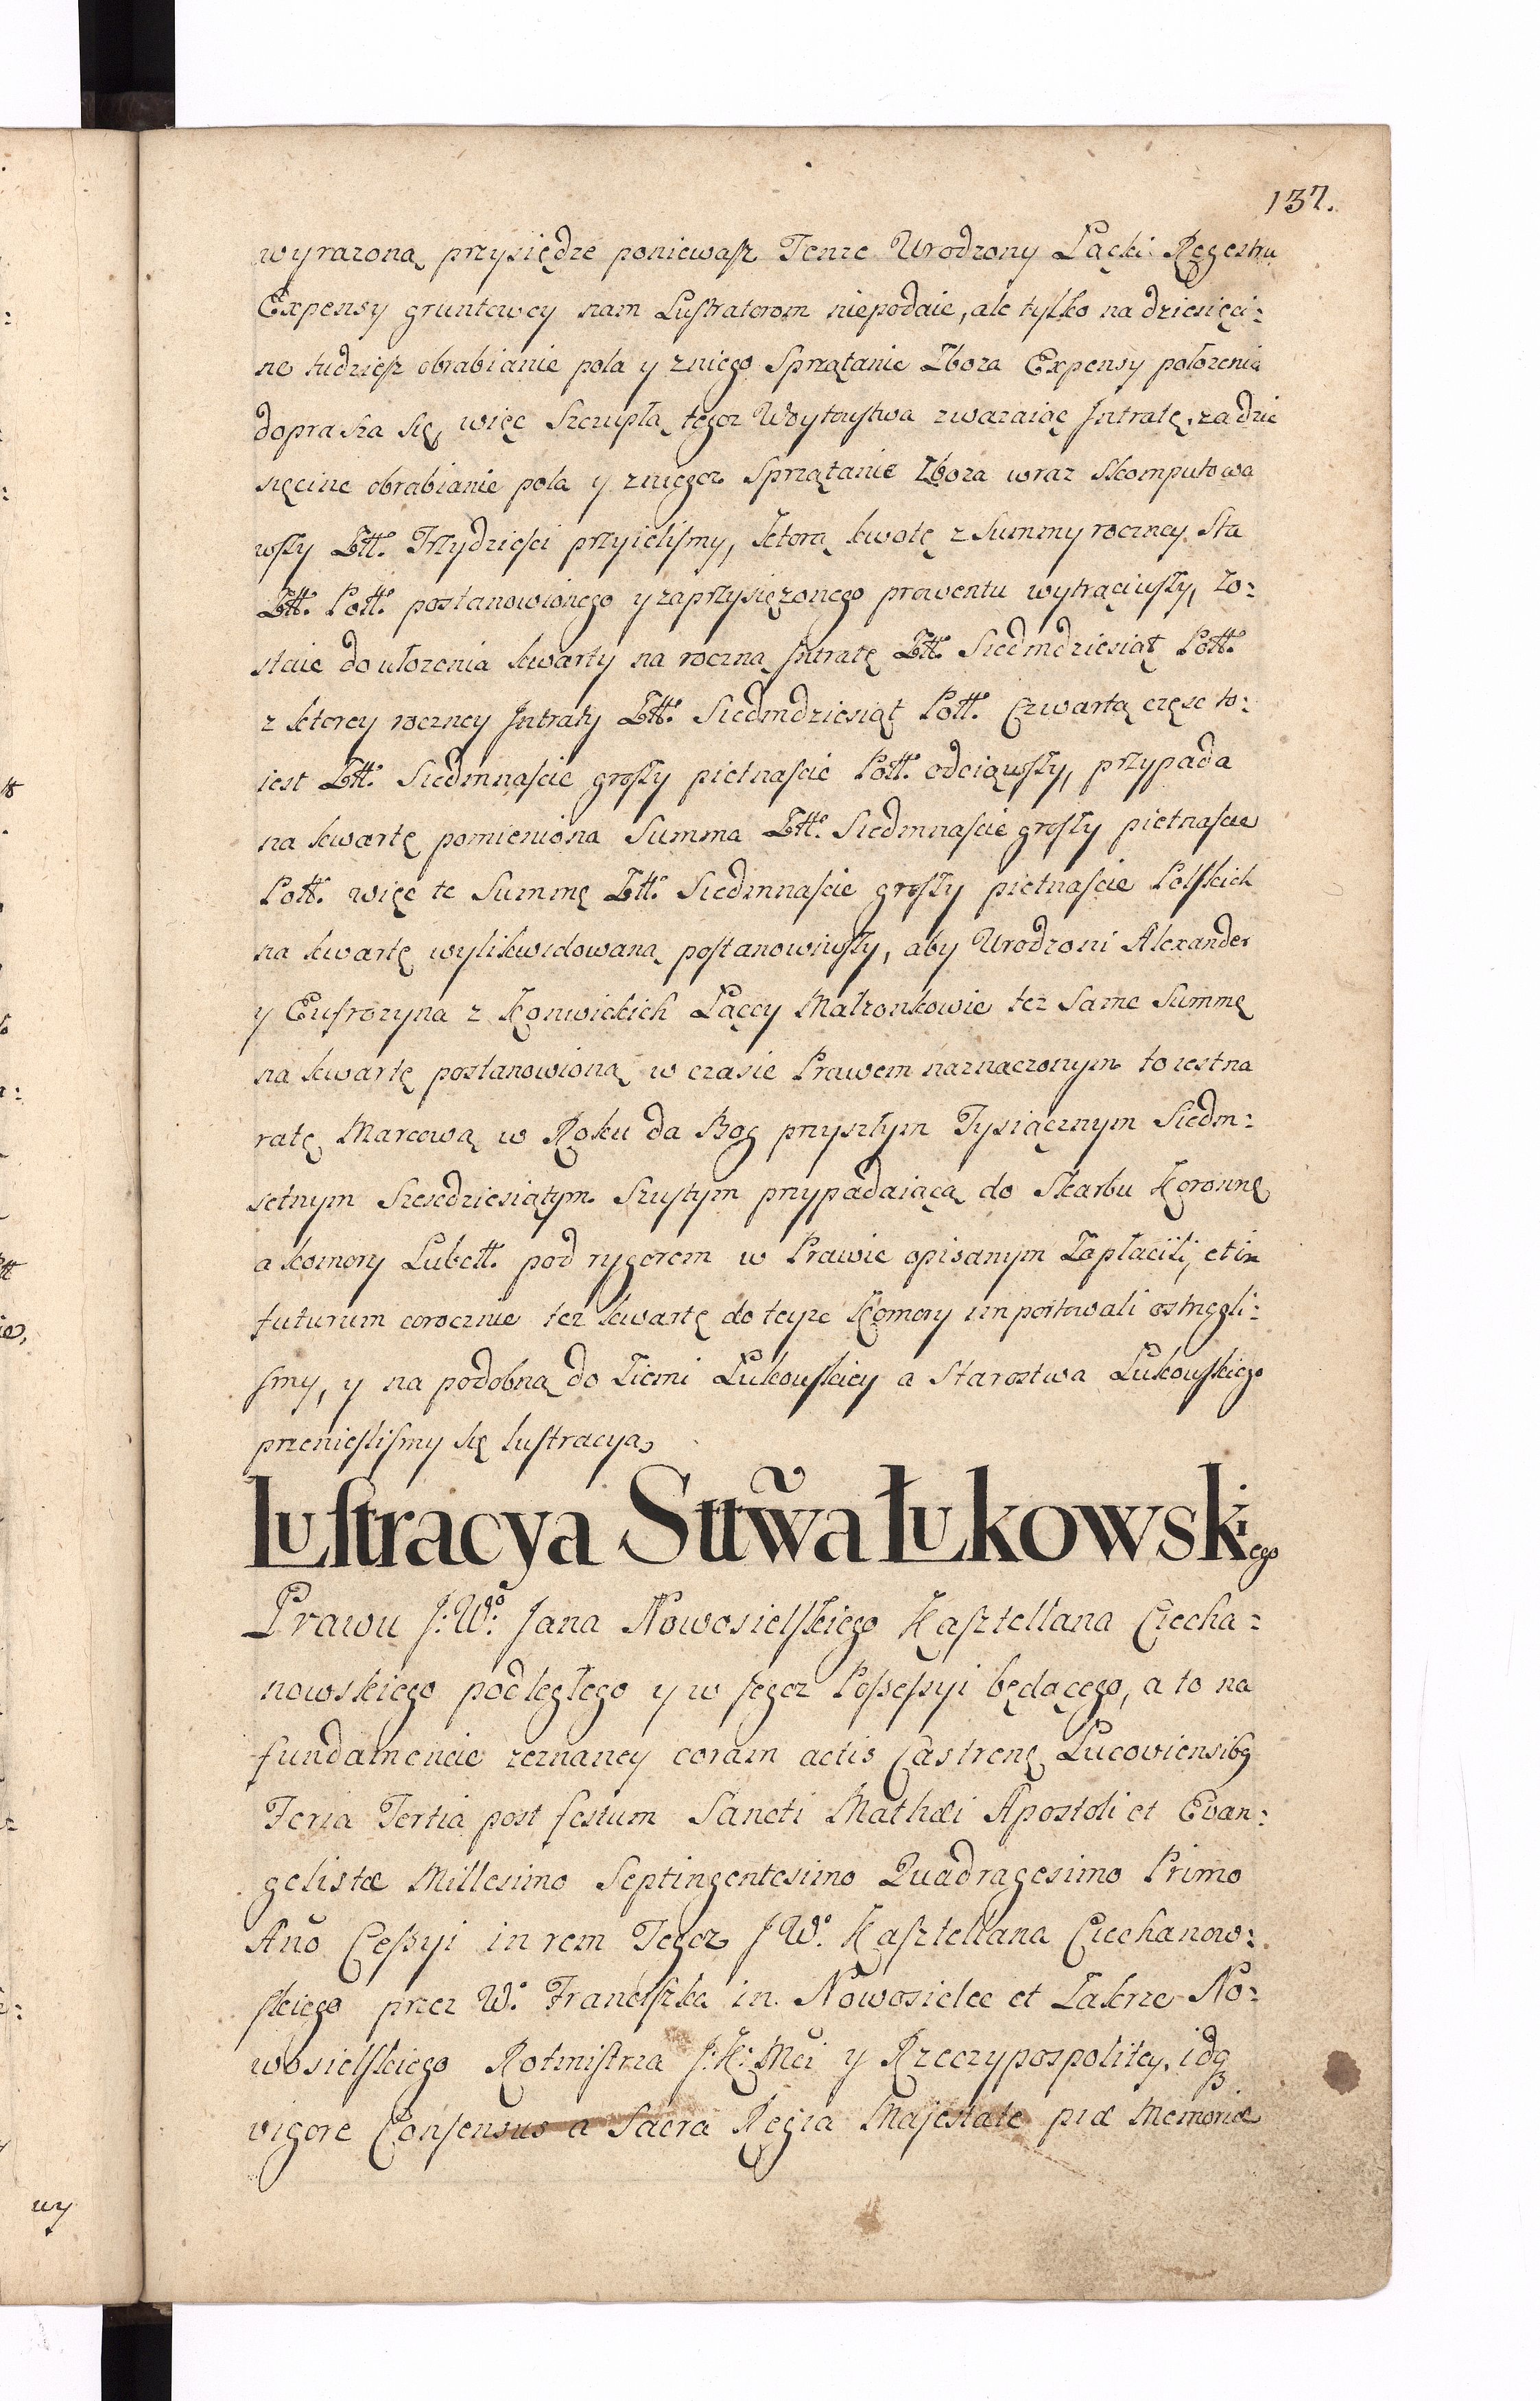 137.
wyrazoną przysiędze poniewasz Tenze Urodzony Łącki Regestru
Expensy gruntowey nam Lustratorom niepodaie, ale tylko na dziesięci:
ne tudziesz obrabianie pola y zniego Sprzątanie Zboza Expensy połozenia
doprasza się, więc Szczupłą tegoz Woytowstwa zwazaiąc Jntratę, za dzie
sięcine obrabianie pola y zniegoz Sprzątanie Zboza wraz skomputowa
wszy Złł. Trzydziesci przyielismy, ktorą kwotę z Summy roczney Sta
Złł. Poll. postanowionego y zaprzysięzonego prowentu wytrąciwszy, zo:
staie do ułozenia kwarty na roczną Jntratę Złł. Siedmdziesiąt Poll.
z ktorey roczney Jntraty Złł. Siedmdziesiąt Poll. Czwartą częsc to:
iest Złł. Siedmnascie groszy pietnascie Poll. odciąwszy, przypada
na kwartę pomieniona Summa Złł. Siedmnascie groszy pietnascie
Poll. więc te Summę Złł. Siedmnascie groszy pietnascie Polskich
na kwartę wylikwidowaną postanowiwszy, aby Urodzoni Alexander
y Eufrozyna z Koniwickich Łąccy Małzonkowie tez Same Summę
na kwartę postanowioną w czasie Prawem naznaczonym to iest na
ratę Marcową w Roku da Bog przyszłym Tysiącznym Siedm:
setnym Szescdziesiątym Szustym przypadaiącą do Skarbu Koronnę
a komory Lubell. pod rygorem w Prawie opisanym Zapłacili, et in
futurum corocznie tez kwartę do teyze Komory importowali ostrzegli:
smy, y na podobną do Ziemi Łukowskiey a Starostwa Łukowskiego
przenieslismy się lustracyą
Lustracya Sttwa Łukowskiego
Prawu J: Wo: Jana Nowosielskiego Kasztellana Ciecha:
nowskiego podległego y w Jegoz Possessyi będącego, a to na
fundamencie zeznaney coram actis Castrenę Lucoviensibq
Feria Tertia post festum Sancti Mathæi Apostoli et Evan:
gelistæ Millesimo Septingentesimo Quadragesimo Primo
Ano Cessyi in rem Tegoz J Wo. Kasztellana Ciechanow:
skiego przez W. Franciszka in Nowosielce et Zakrze No:
wosielskiego Rotmistrza J: K: Mci y Rzeczypospolitey, idq
vigore Consensus a Sacra Regia Majestate piæ Memoriæ
wy